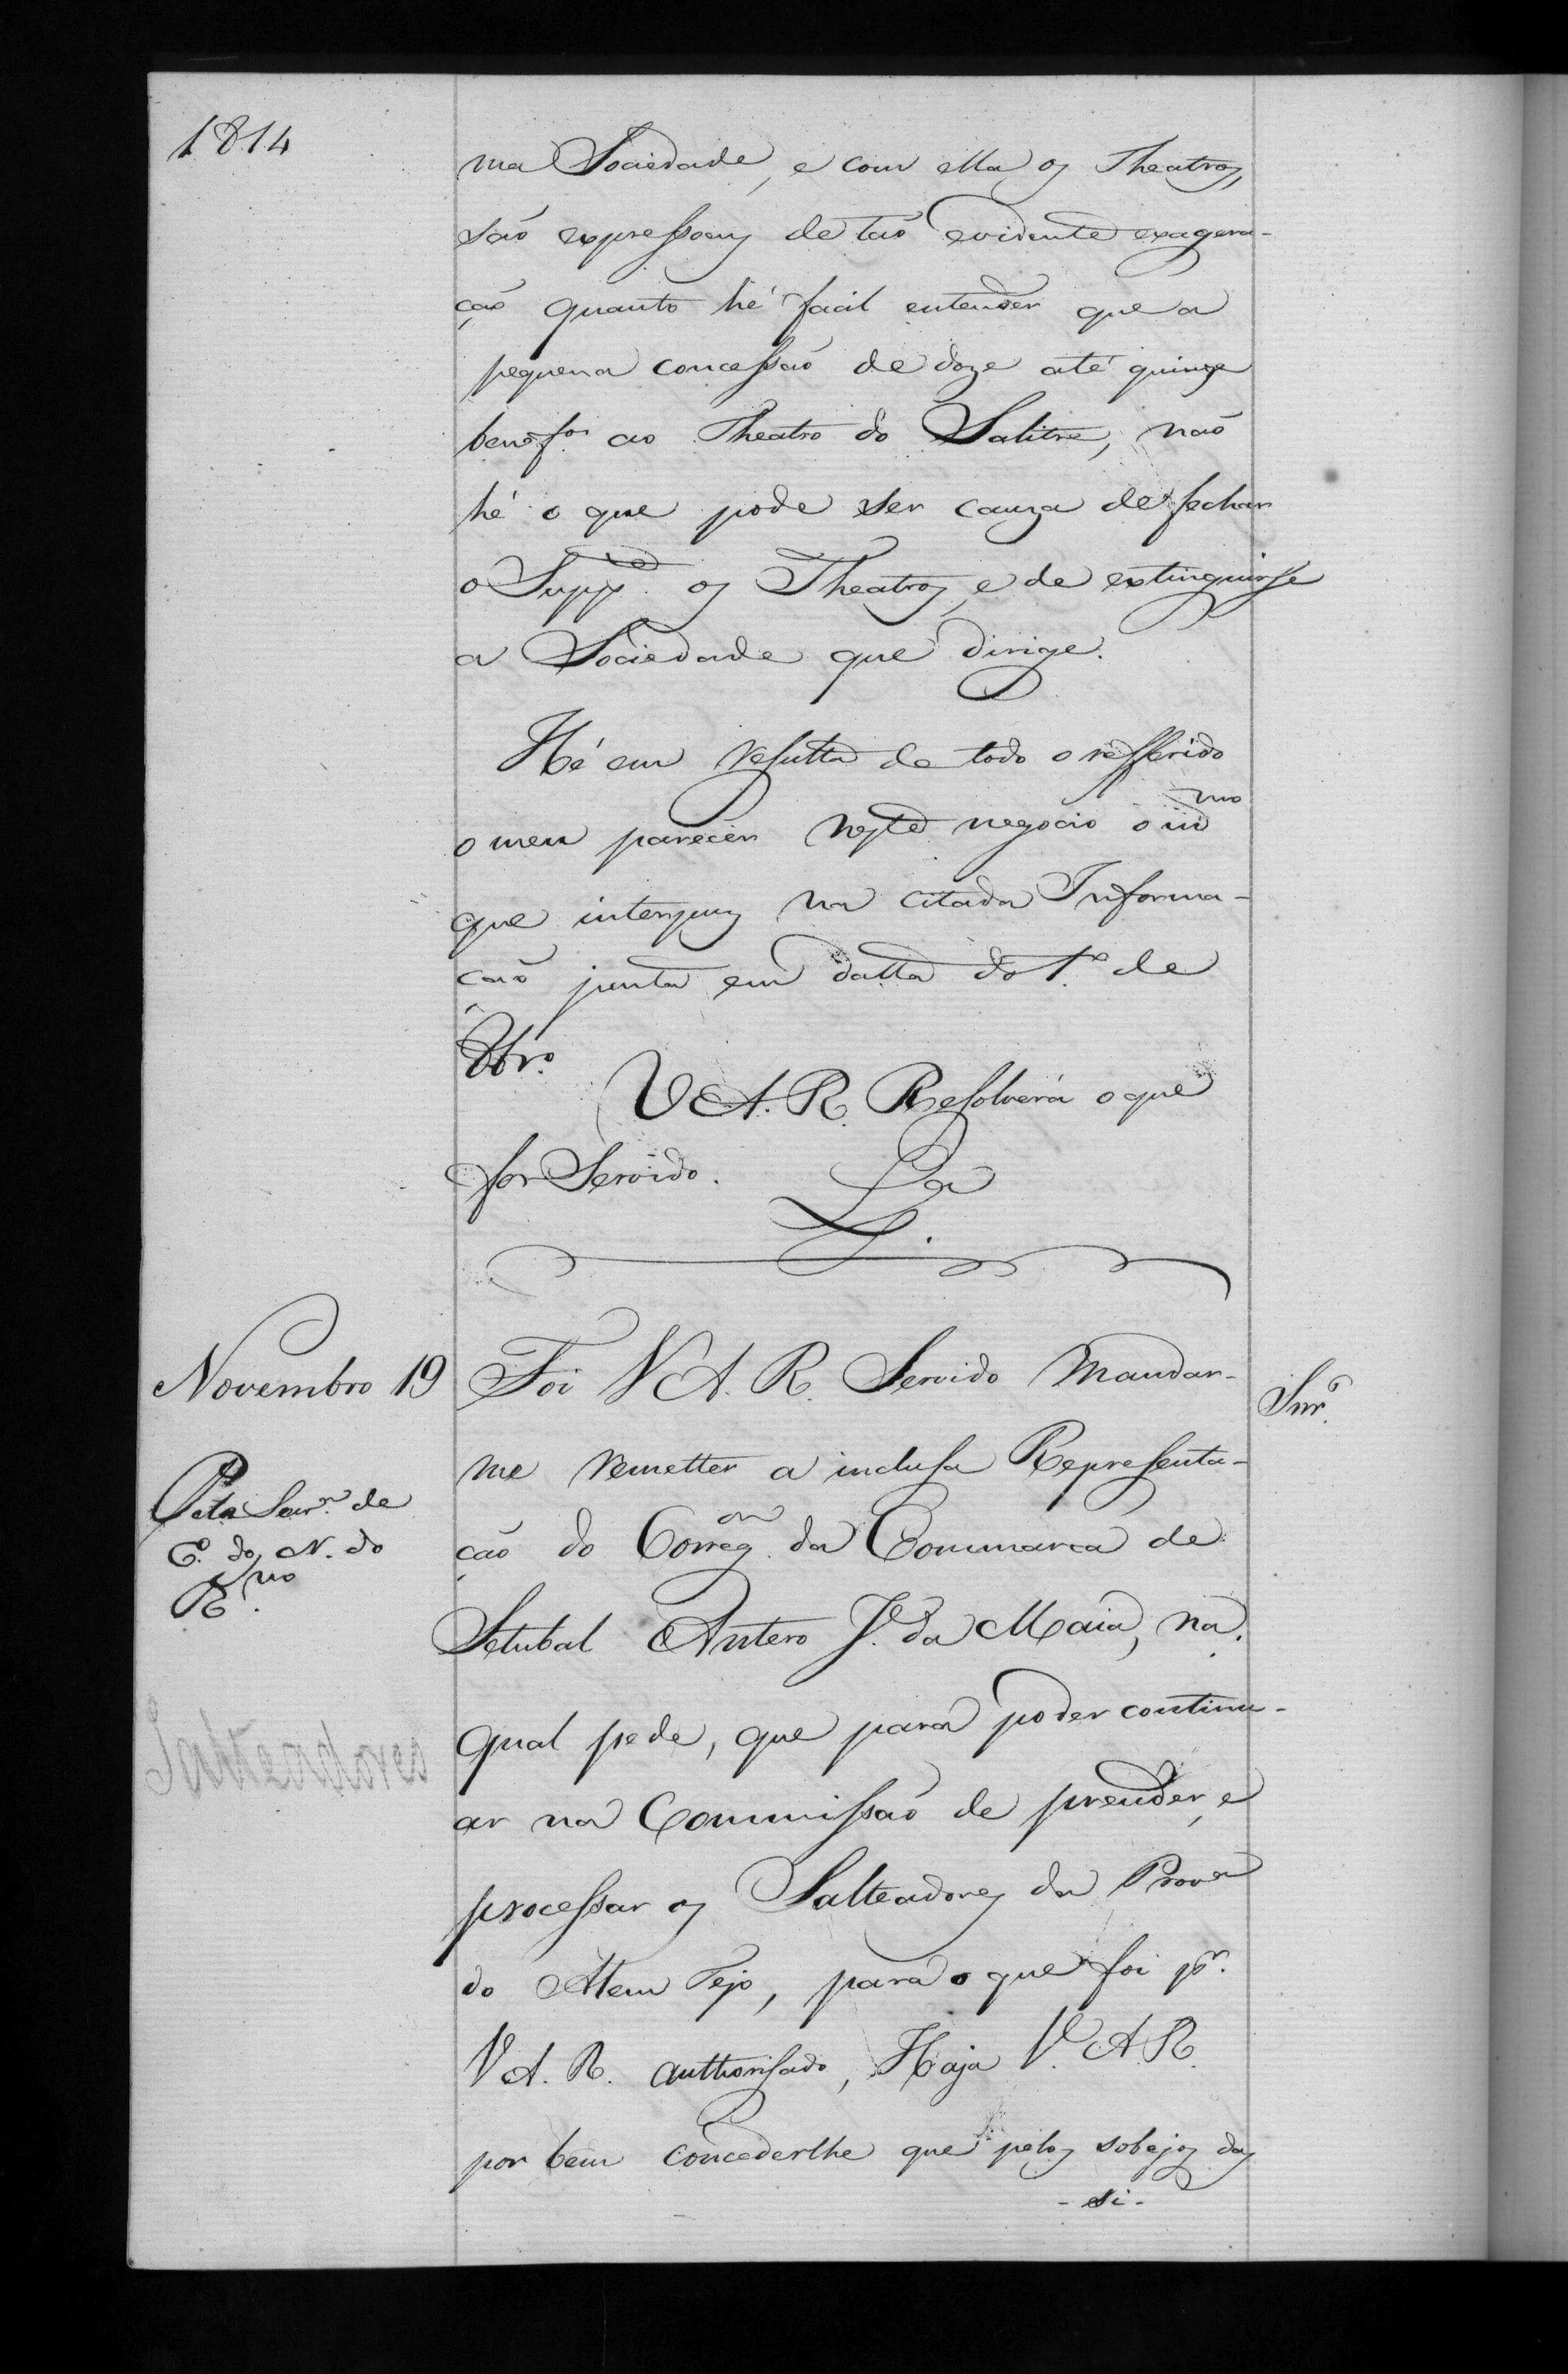 1814
ma Sociedade, e com ella os Theatros,
são expressoens de tão evidente exagera-
ção quanto hé facil entender que a
pequena concessão de doze até quinze
benef.os ao Theatro do Salitre, não
hé o que pode ser cauza de fechar
o Supp.e os Theatros, e de extinguirse
a Sociedade que dirige.
Hé em resulta de todo o refferido
o meu parecer neste negocio o
que interpuz na citada Informa-
ção junta em datta do 1.º de
8br.º
V.A.R. Resolverá o que
for Servido. L.a
L.
Novembro 19
Foi V.A.R. Servido Mandar-
Snr.
me remetter a inclusa Representa-
Pela Secr.a de
ção do Correg.or da Commarca de
E. dos N. do
R.no
Setubal Antero J.e da Maia, na
qual pede, que para poder continu-
Salteadores
ar na Commissão de prender, e
processar os Salteadores da Prov.a
do Alem Tejo, para o que foi p.r
V.A.R. authorisado, Haja V.A.R.
por bem concederlhe que pelos sobejos das
- si -